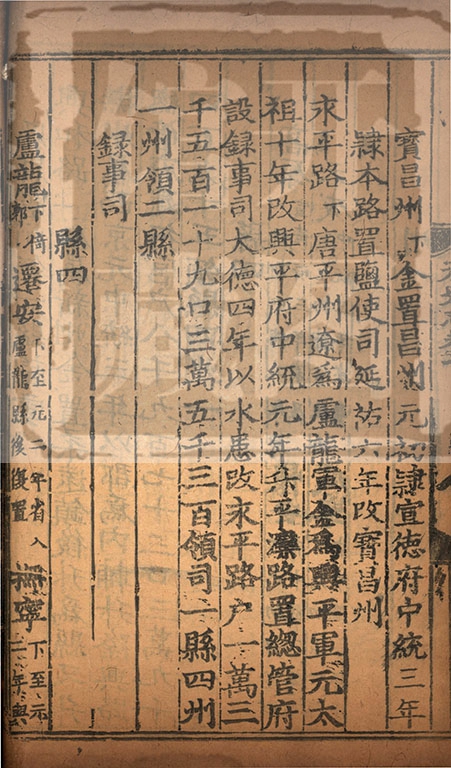 寶昌州下金置昌州元初隸宣徳府中統三年
隸本路置鹽使司延祐六年改寶昌州
永平路下唐平州遼爲盧龍軍金爲興平軍元太
祖十年改興平府中統元年升平灤路置緫管府
設録事司大德四年以水患改永平路户一萬三
千五百一十九口三萬五千三百領司一縣四州
一州領二縣
録事司
縣四
盧龍下倚郭遷安下至元二年省入盧龍縣後復置撫寧下至元二年與